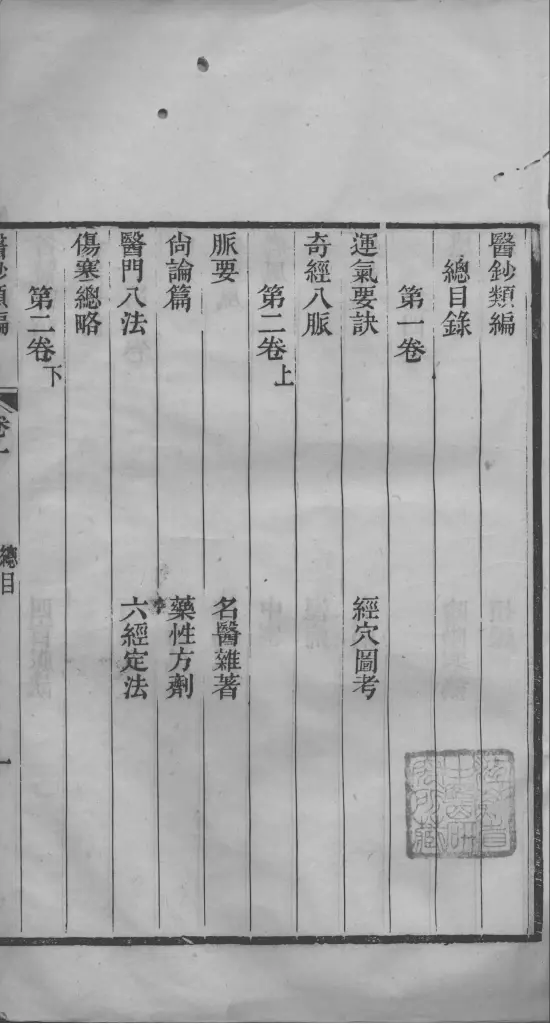 醫鈔類編
總目錄
第一卷
運氣要訣　經穴圖考
奇經八脈
第二卷上
脈要　名醫雜著
尙論篇　藥性方劑
醫門八法　六經定法
傷寒總略
第二卷下
醫鈔類編　卷一　總目　一